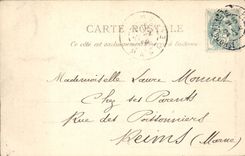 CARTE POSTALE
Ce côté est exclusivement réservé à l'adresse
Mademoiselle Laure Mounet
Chez ses Parents
Rue des Poissonniers
Reims (Marne)